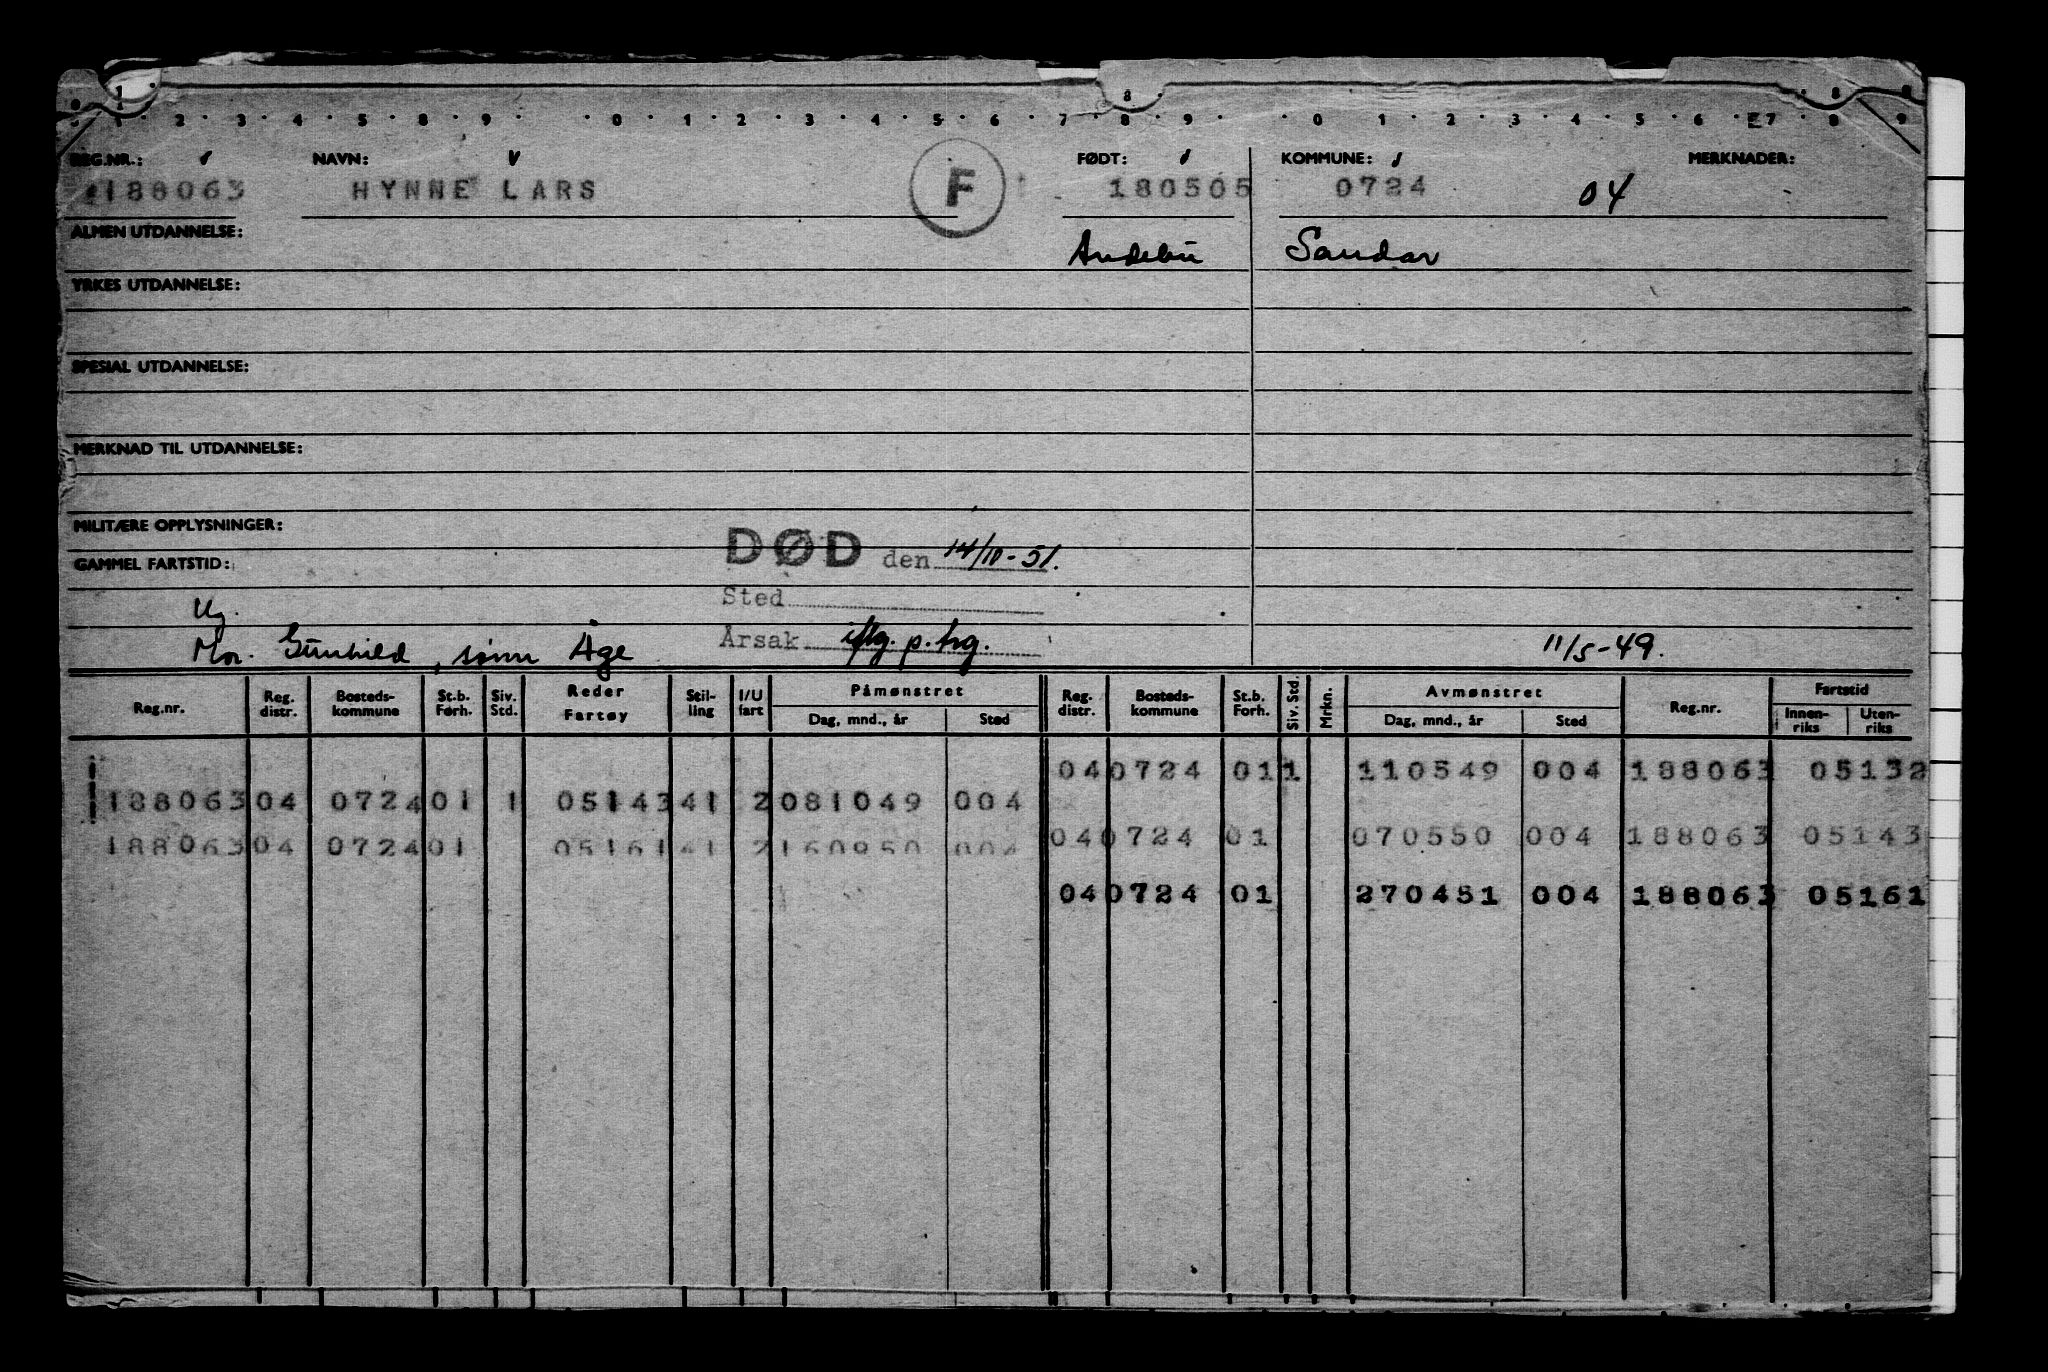 1
8
8
1 2 3 4 5 6 7 8 9 0 1 2 3 4 5 6 7 8 9 0 1 2 3 4 5 6 E7 8 9
REG.NR.: NAVN: FØDT: KOMMUNE: MERKNADER:
188063 HYNNE LARS F 180505 0724 04
ALMEN UTDANNELSE: Andebu Sandar
YRKES UTDANNELSE:
SPESIAL UTDANNELSE:
MERKNAD TIL UTDANNELSE:
MILITÆRE OPPLYSNINGER:
DØD den 14/10-51.
GAMMEL FARTSTID:
Sted
Ug.
Årsak iflg. p.trg.
Mor. Gunhild, sønn Åge 11/5-49.
Reg.nr. Reg. distr. Bosteds-kommune St.b. Førh. Siv. Std. Reder Fartøy Stil-ling I/U fart Påmønstret Dag, mnd., år Sted Reg. distr. Bosteds-kommune St.b. Forh. Siv. Std. Mrkn. Avmønstret Dag, mnd., år Sted Reg.nr. Fartstid Innen-riks Uten-riks
04 0724 01 1 110549 004 188063 05132
188063 04 0724 01 1 05143 41 2 081049 004
04 0724 01 070550 004 188063 05143
188063 04 0724 01 05161 41 2 160950 004
04 0724 01 270451 004 188063 05161